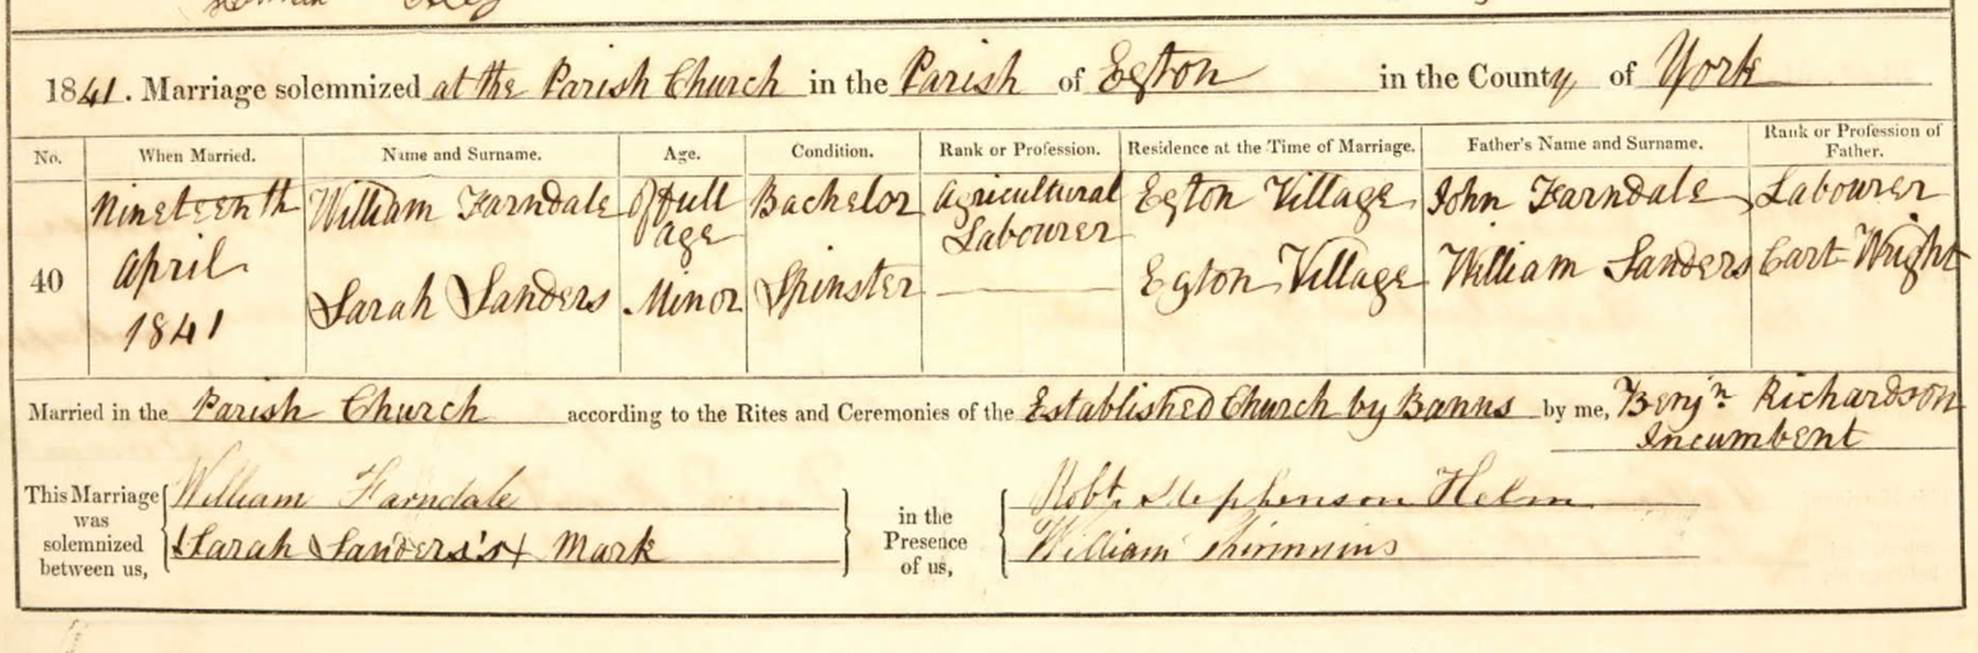 1841. Marriage solemnized at the Parish Church in the Parish of Egton in the County of York
No. When Married. Name and Surname. Age. Condition. Rank or Profession. Residence at the Time of Marriage. Father's Name and Surname. Rank or Profession of Father.
40
Nineteenth April 1841
William Farndale Of full age Bachelor Agricultural Labourer Egton Village John Farndale Labourer
Sarah Sanders Minor Spinster Egton Village William Sanders Cart Wright
Married in the Parish Church according to the Rites and Ceremonies of the Established Church by Banns by me, Benjn Richardson
Incumbent
This Marriage was solemnized between us,
William Farndale
Sarah Sanders's x Mark
in the Presence of us,
Robt. Stephenson Helm
William